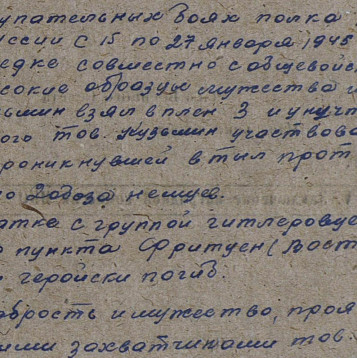 упательных боях полка
уссии с 15 по 27 января 1945
едке совместно с общевойс
сокие образцы мужества и
ьмин взял в плен 3 и уничт
ого тов. Кузьмин участвова
роникнувшей в тыл прот
о 2 обоза немцев.
атке с группой гитлеровце
о пункта Фритцен (Вост
геройски погиб.
абрость и мужество, проя
ими захватчиками тов.